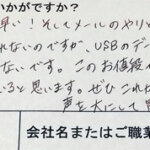 いかがですか？
早い！そしてメールのやりと
れないのですが、USBのデー
ないです。このお値段で
いると思います。ぜひこれか
声を大にして
会社名またはご職業